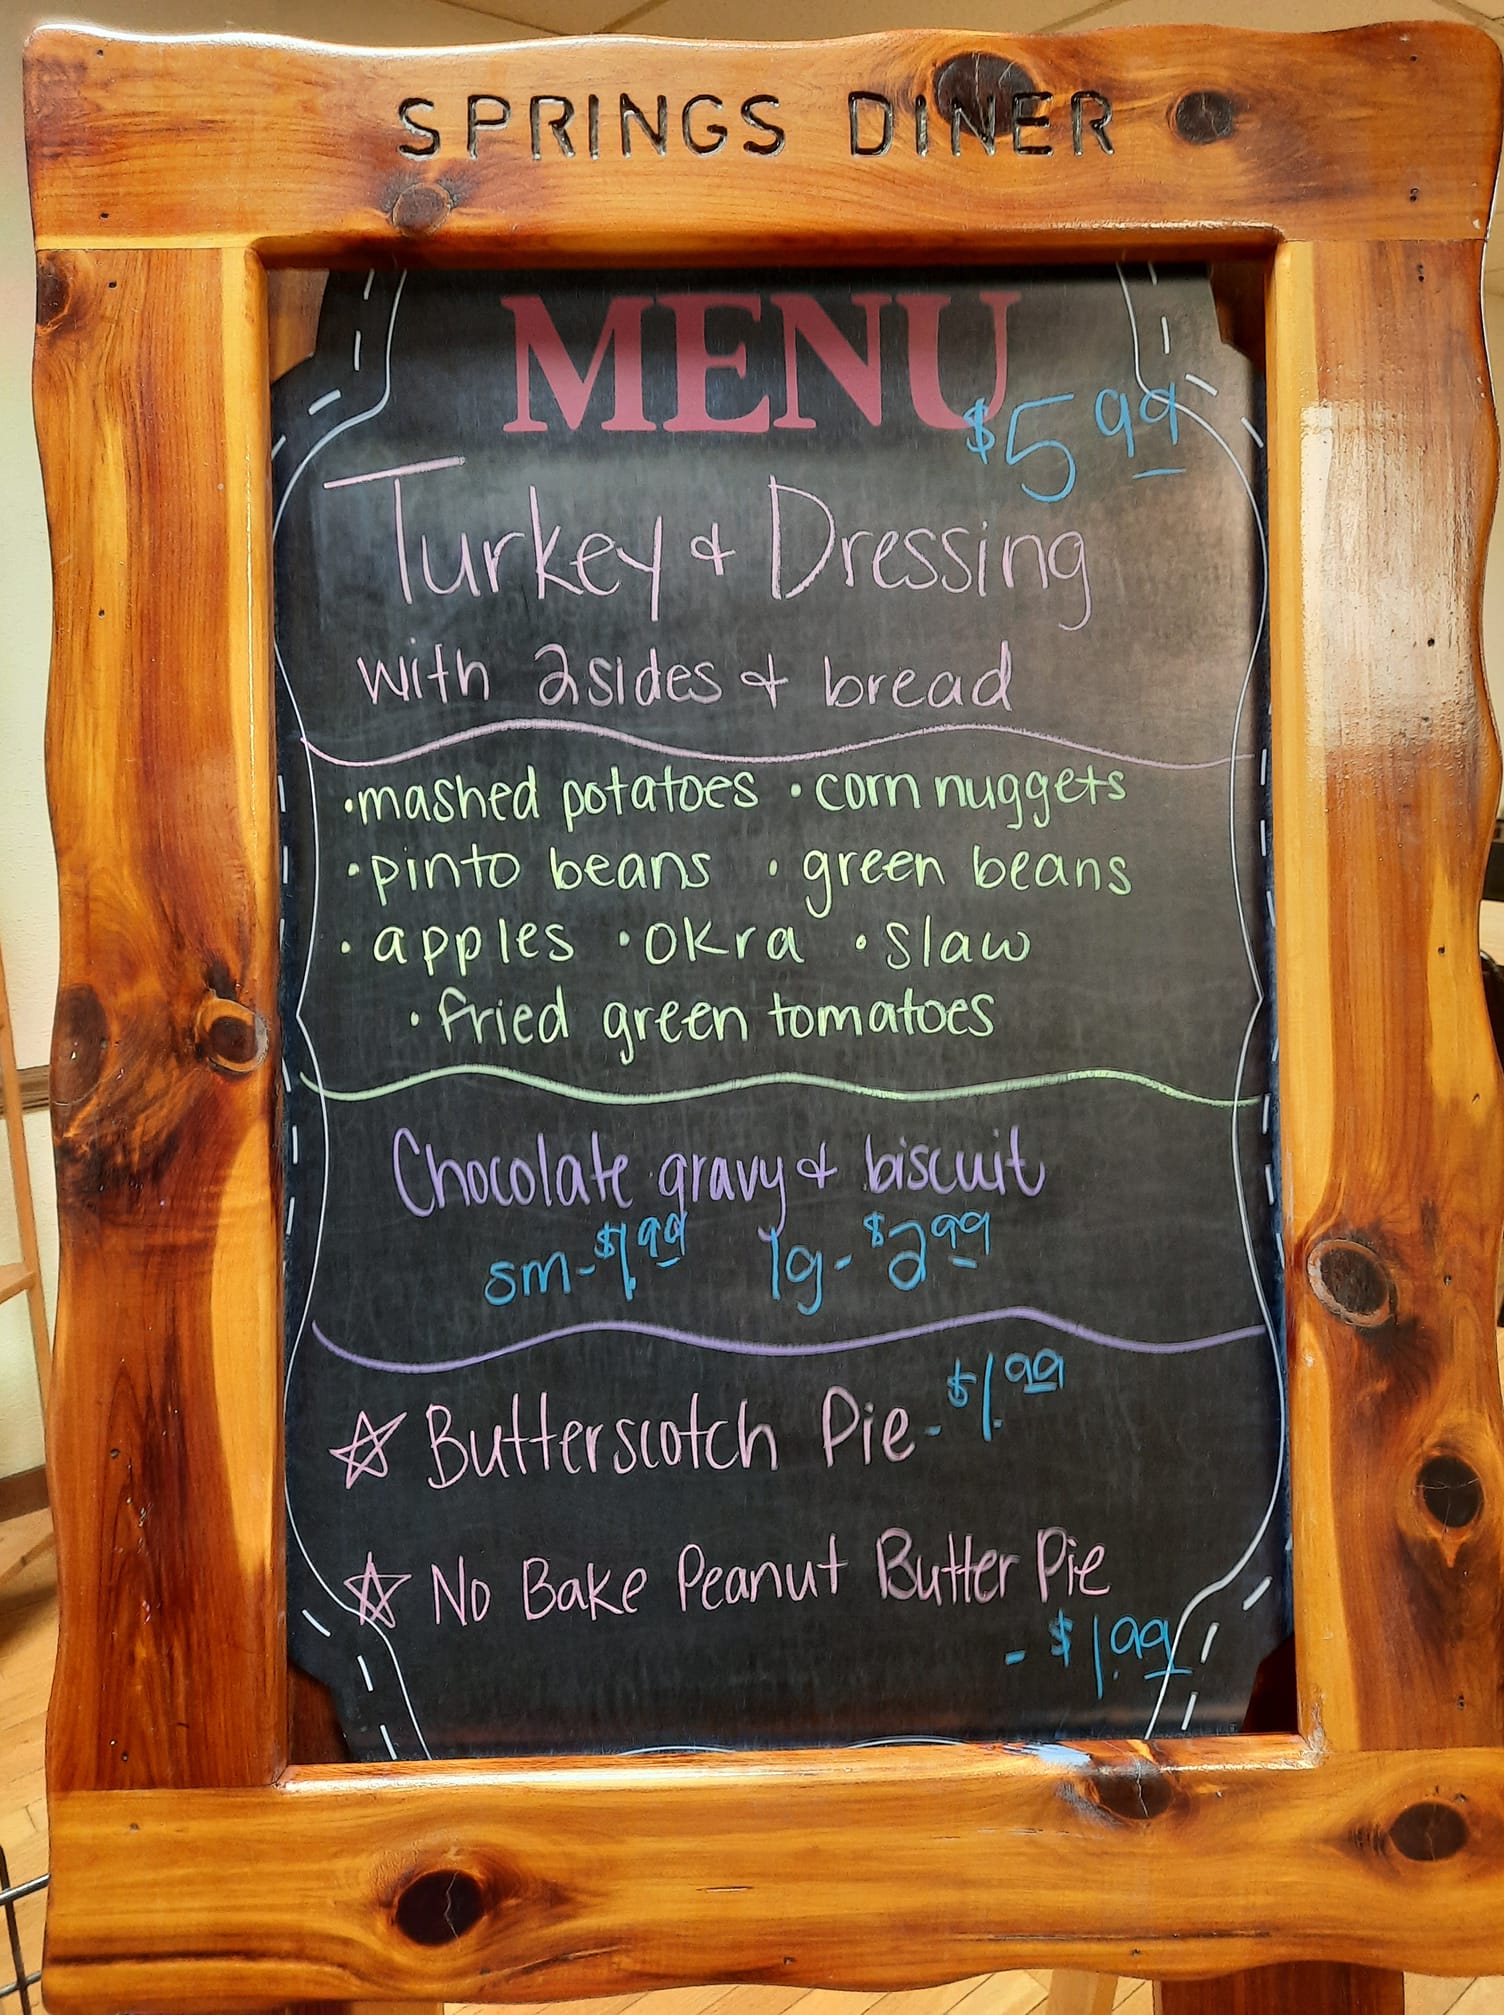 SPRINGS DINER
MENU
$5.99
Turkey & Dressing
with 2 sides & bread
• mashed potatoes • corn nuggets
• pinto beans • green beans
• apples • okra • slaw
• fried green tomatoes
Chocolate gravy & biscuit
sm - $1.99 lg - $2.99
☆ Butterscotch Pie - $1.99
☆ No Bake Peanut Butter Pie
- $1.99